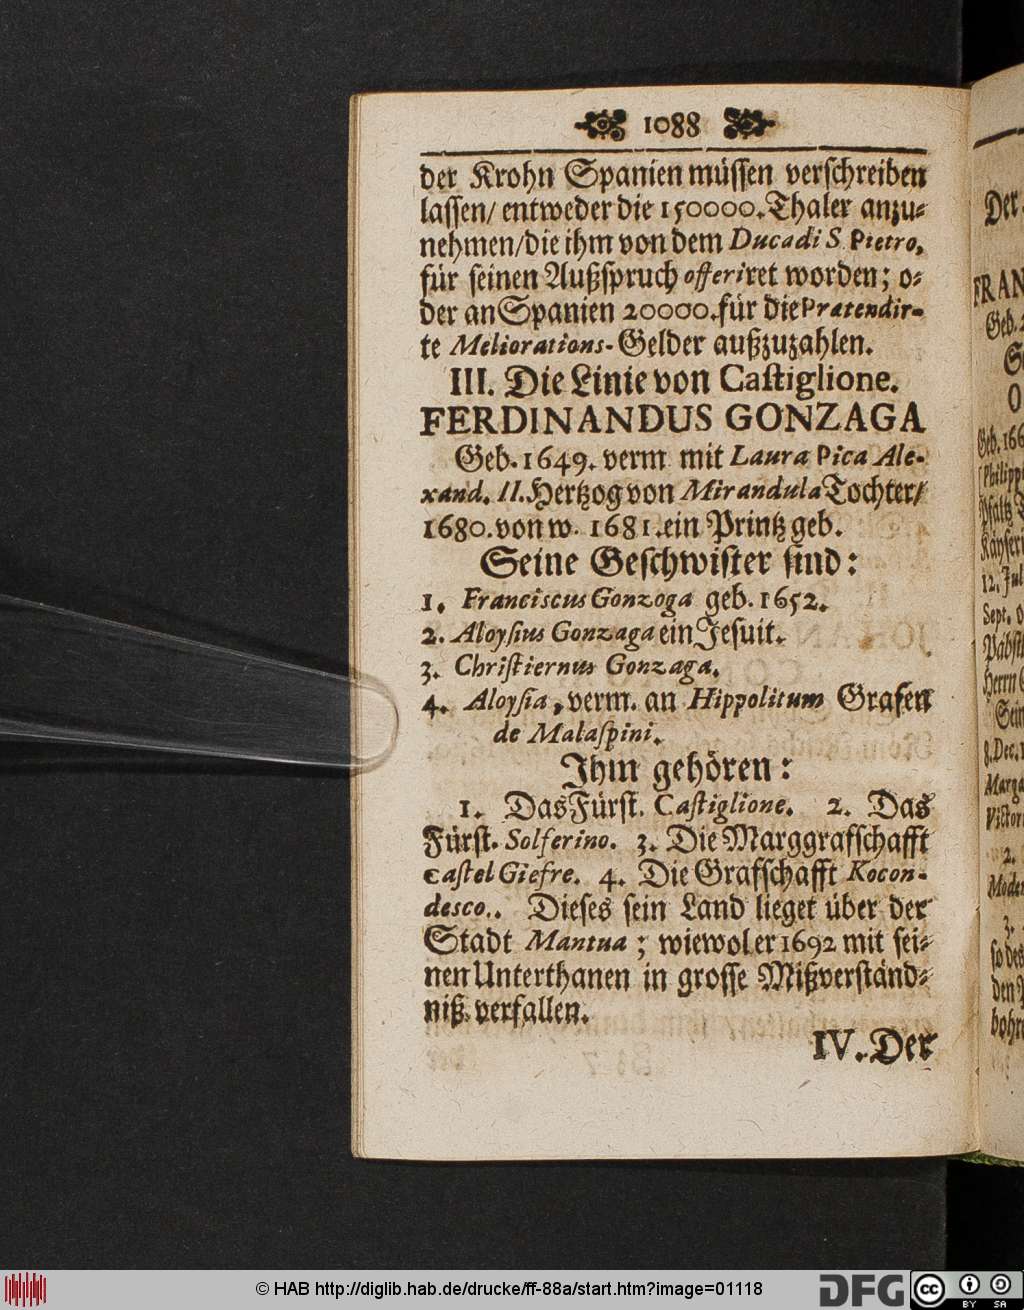 1088
der Krohn Spanien müssen verschreiben
lassen/ entweder die 150000. Thaler anzu-
nehmen/die ihm von dem Duca di S. Pietro,
für seinen Außspruch offeriret worden; o-
der an Spanien 20000. für die Prætendir-
te Meliorations-Gelder außzuzahlen.
III. Die Linie von Castiglione.
FERDINANDUS GONZAGA
Geb. 1649. verm mit Laura Pica Ale-
xand. II. Hertzog von Mirandula Tochter/
1680. von w. 1681. ein Printz geb.
Seine Geschwister sind:
1. Franciscus Gonzoga geb. 1652.
2. Aloysius Gonzaga ein Jesuit.
3. Christiernus Gonzaga.
4. Aloysia, verm. an Hippolitum Grafen
de Malaspini.
Ihm gehören:
1. Das Fürst. Castiglione. 2. Das
Fürst. Solferino. 3. Die Marggrafschafft
Castel Giefre. 4. Die Grafschafft Kocon-
desco.. Dieses sein Land lieget über der
Stadt Mantua; wiewol er 1692 mit sei-
nen Unterthanen in grosse Mißverständ-
niß verfallen.
IV. Der
Der
FRAN
Geb.
O
Geb. 166
Philipp
Pfaltz
Käyseri
12. Jul
Sept.
Päbstl
Herrn
Sein
8. Dec.
Marga
Victor
2.
Moden
3.
so des
den
bohr
© HAB http://diglib.hab.de/drucke/ff-88a/start.htm?image=01118
DFG
cc
BY SA